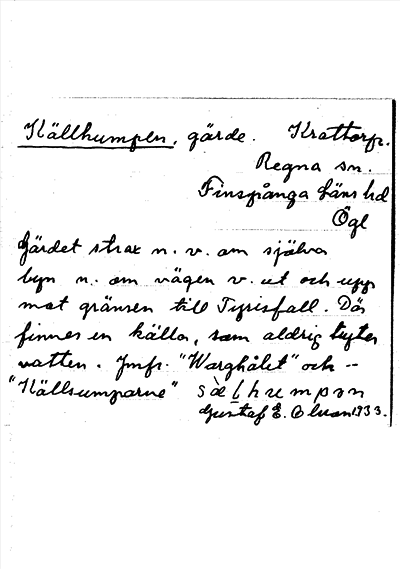 Källhumpen, gärde. Krattorp.
Regna sn.
Finspånga läns hd
Ögl
Gärdet strax n. v. om själva
byn n. om vägen v. ut och upp
mot gränsen till Tyrisfall. Där
finnes en källa, som aldrig tryter
vatten. Jmfr. "Warghålet" och --
"Källsumparne" sæ̀lhumpən
Gustaf E. Olsson 1933.